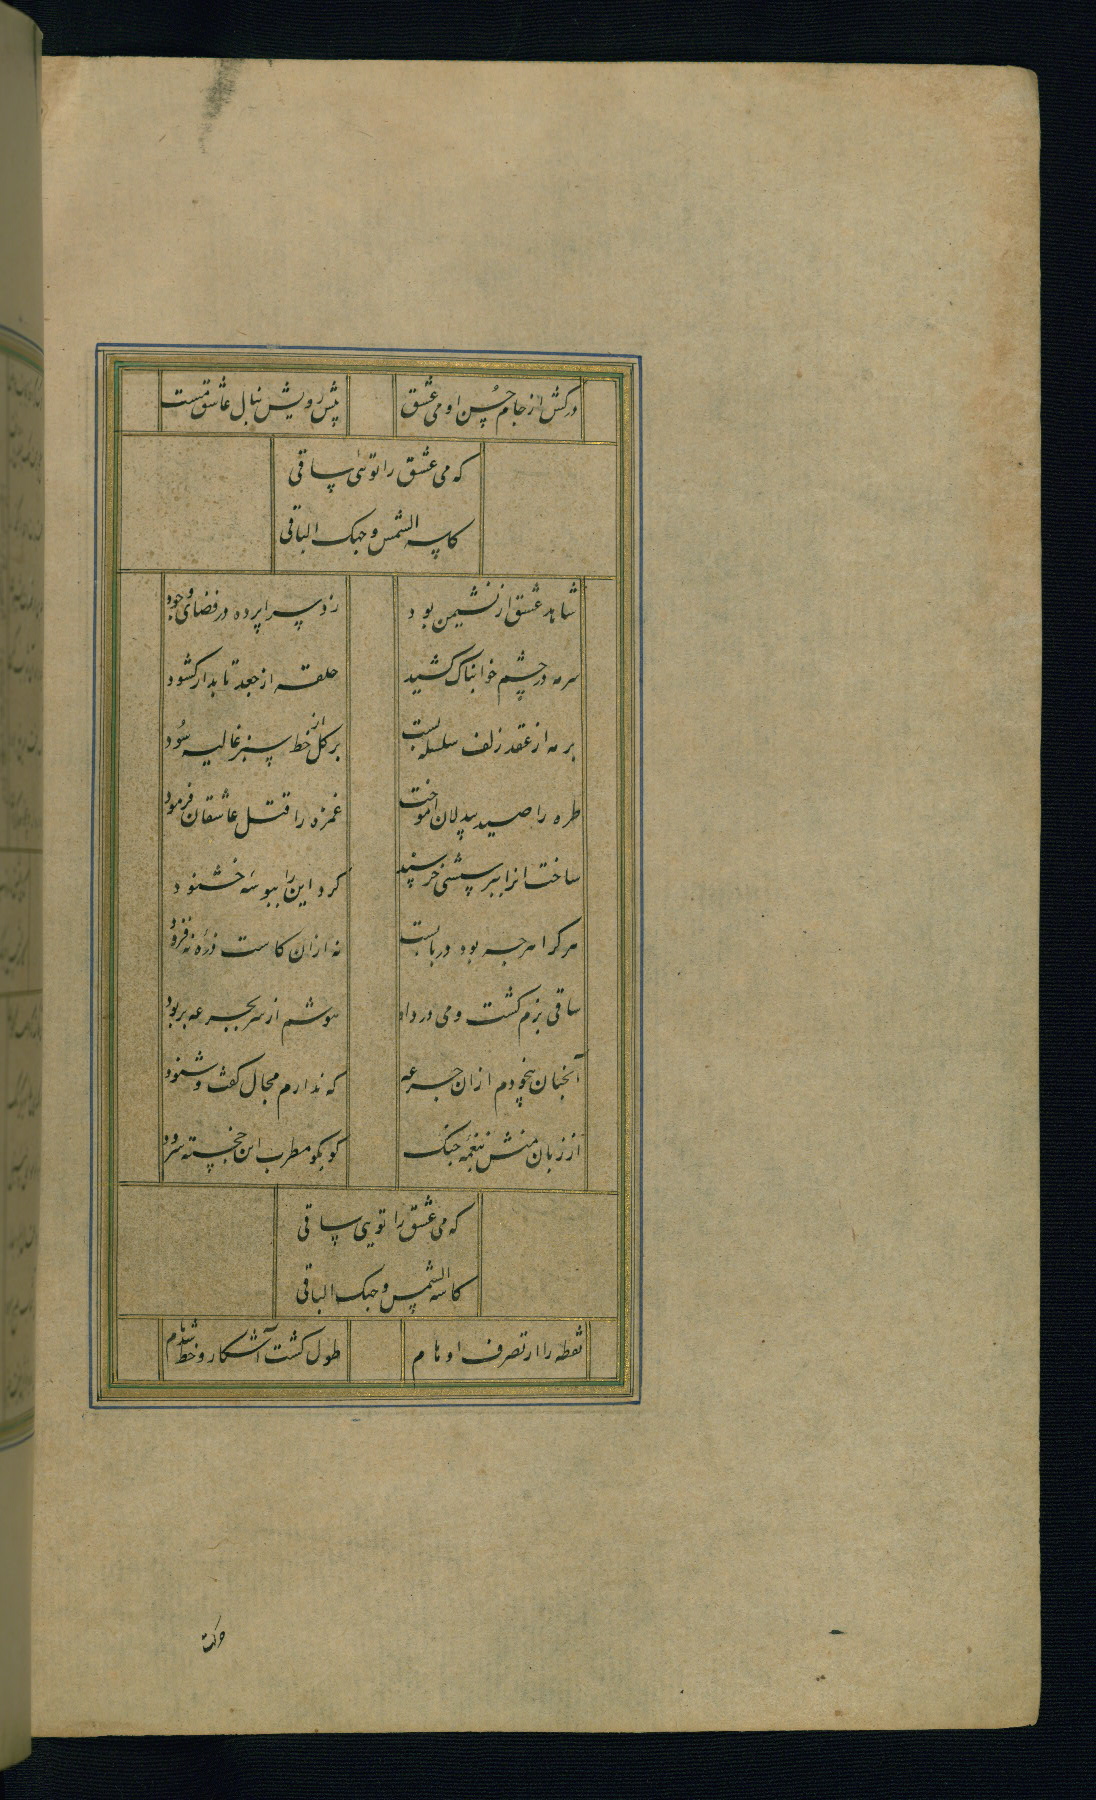 درکش از جام حسن او می عشق پیش رویش بنال عاشق مست
که می عشق را توئی ساقی
کاسه الشمس وجهک الباقی
شاهد عشق از نشیمن بود زد سراپرده در فضای وجود
سرمه در چشم خوابناک کشید حلقه از جعد تابدار کشود
بر مه از عقد زلف سلسله بست بر کل از خط سبز غالیه سود
طره را صید بیدلان آموخت غمزه را قتل عاشقان فرمود
ساخت انرا بپرسشی خرسند کرد این را ببوسه خشنود
هرکرا هرچه بود دربایست نه ازان کاست ذره نه فزود
ساقی بزم کشت و می در داد هوشم از سر بجرعه بربود
آنچنان بیخودم ازان جرعه که ندارم مجال کفت و شنود
از زبان منش بنغمه چنک کو بکو مطرب این خجسته سرود
که می عشق را تویی ساقی
کاسه الشمس وجهک الباقی
نقطه را از تصرف اوهام طول کشت آشکار و خط شد نام
حرکت